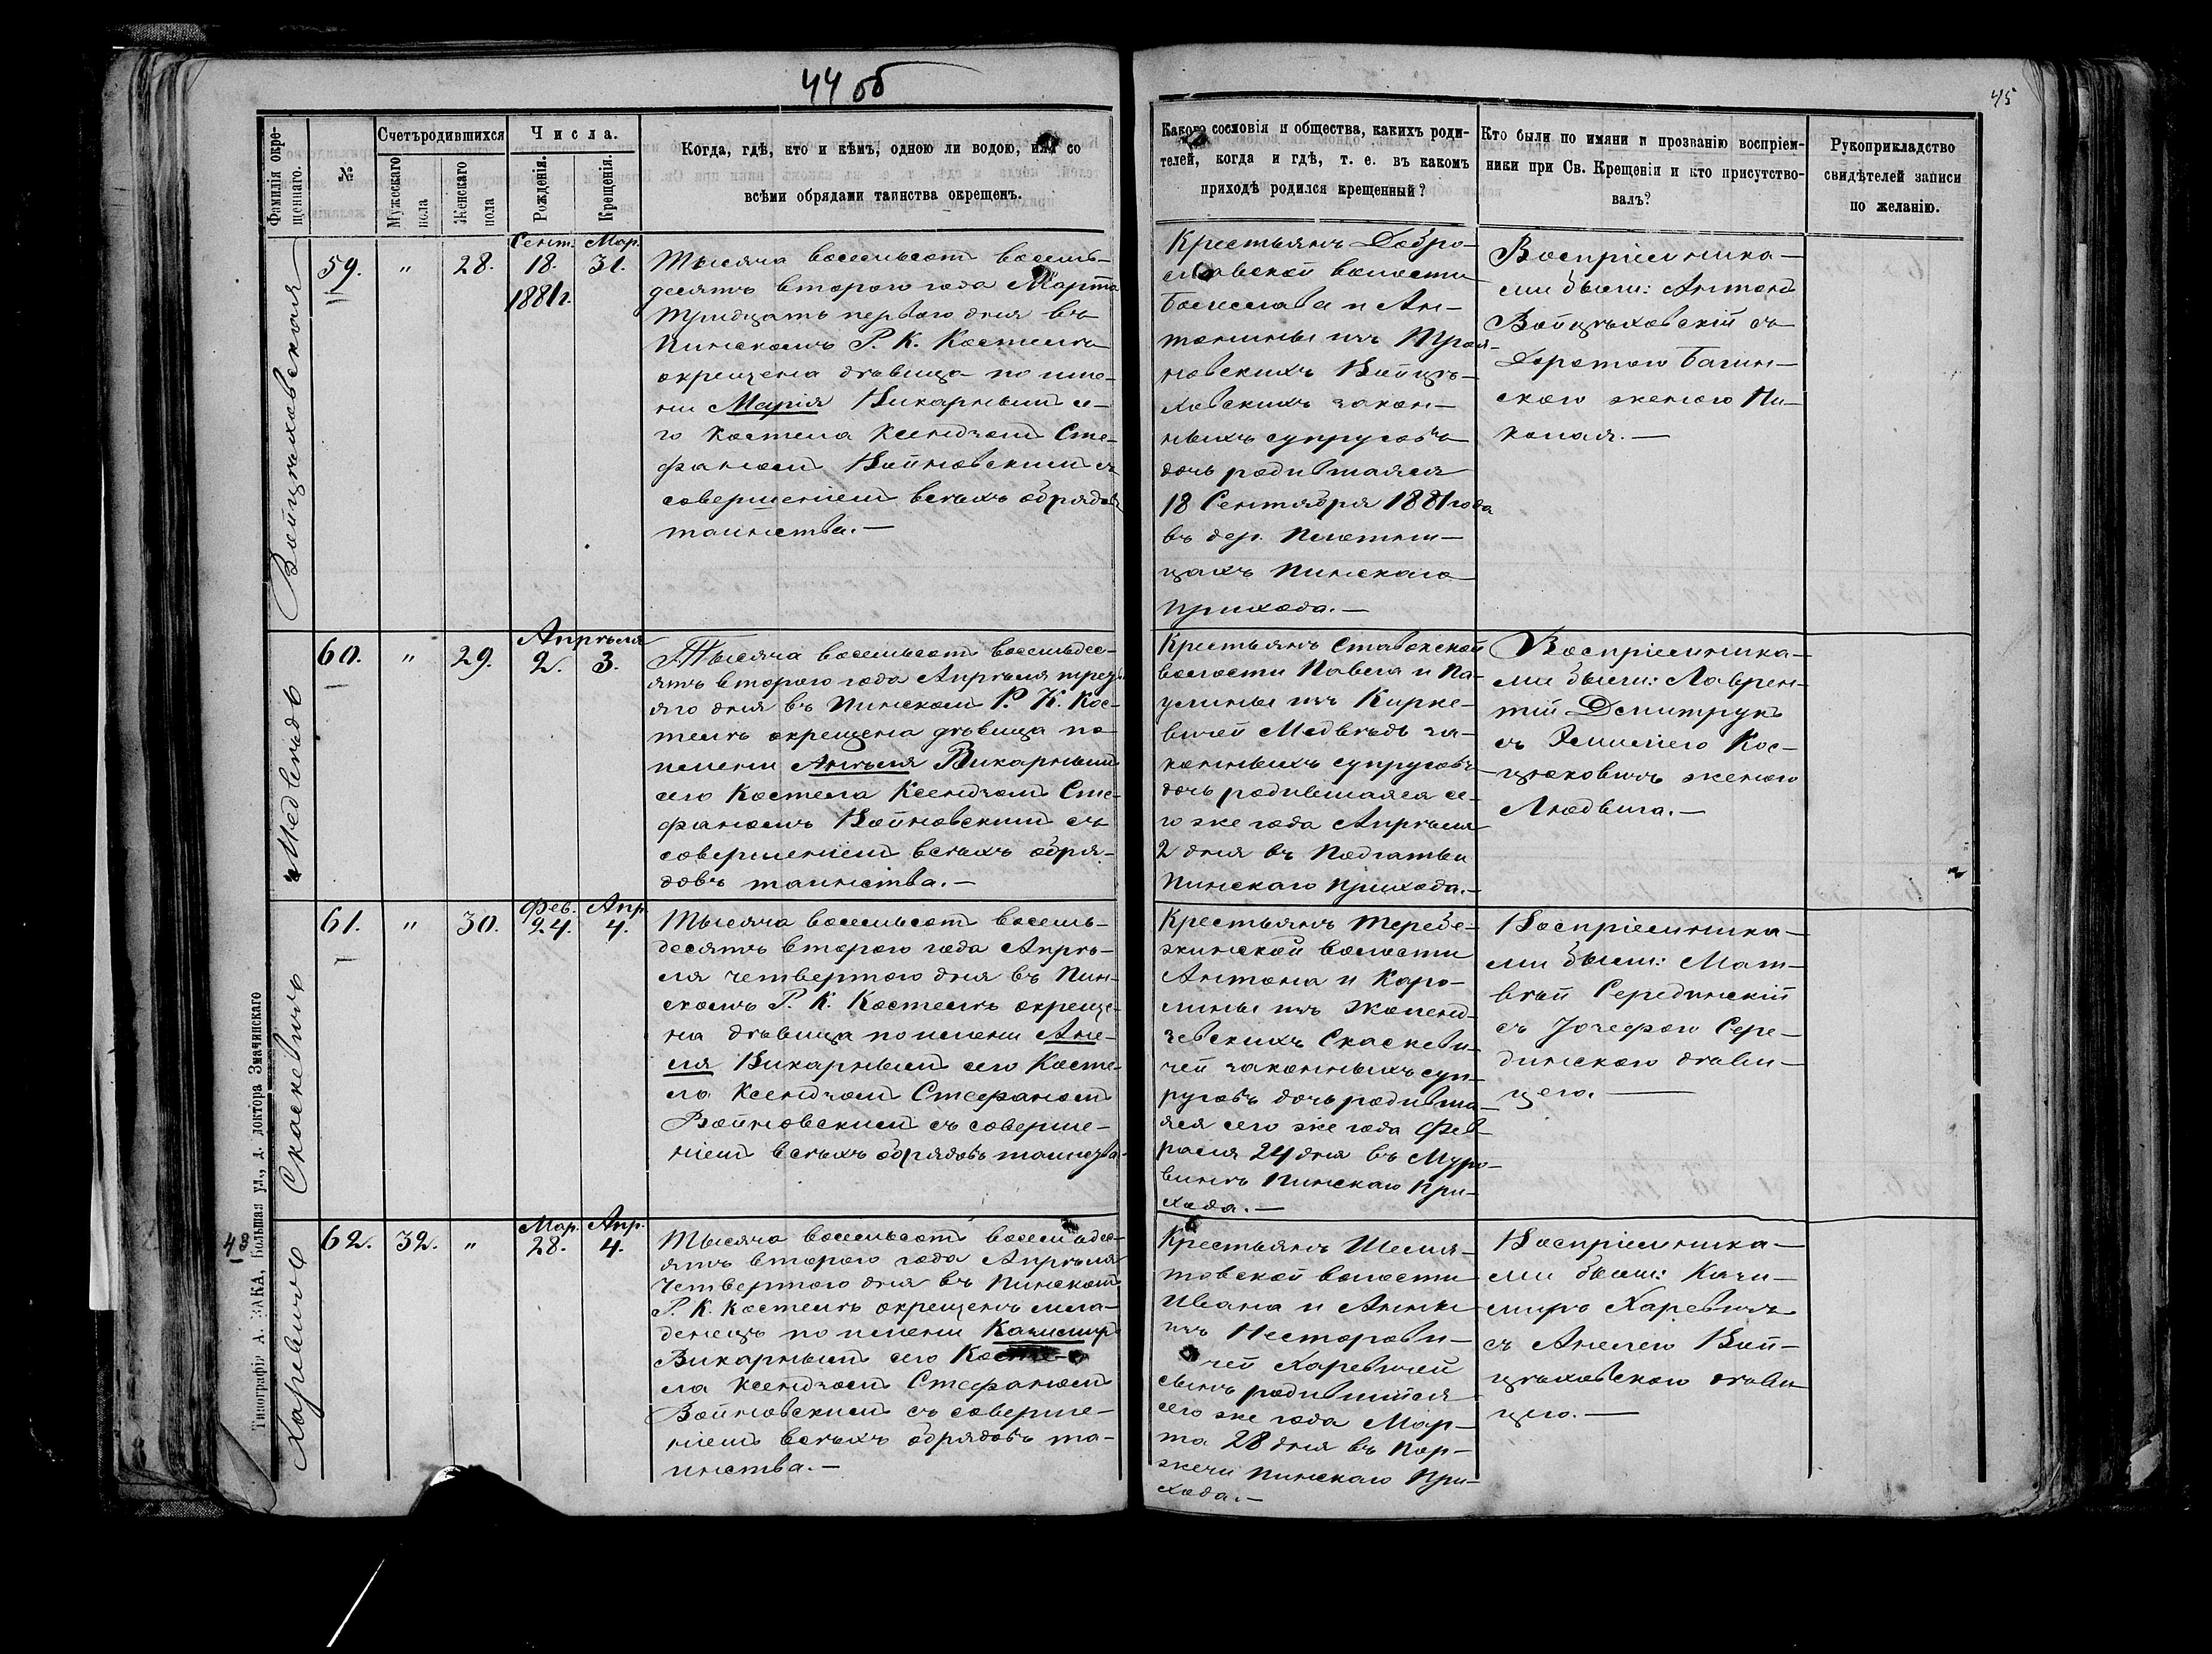 44 об
45
Фамилія окрещеннаго.
№
Счетъ родившихся
Мужескаго пола
Женскаго пола
Числа.
Рожденія.
Крещенія.
Когда, гдѣ, кто и кѣмъ, одною ли водою, или со
всѣми обрядами таинства окрещенъ.
Какого сословія и общества, какихъ роди-
телей, когда и гдѣ, т. е. въ какомъ
приходѣ родился крещенный?
Кто были по имяни и прозванію воспріем-
ники при Св. Крещеніи и кто присутство-
валъ?
Рукоприкладство
свидѣтелей записи
по желанію.
Войцѣховская
59.
"
28.
Сент.
18.
1881 г.
Мар.
31.
Тысяча восемьсотъ восемь-
десятъ второго года Марта
тридцать перваго дня въ
Пинскомъ Р. К. Костелѣ
окрещена дѣвица по име-
ни Марія Викарнымъ се-
го Костела Ксендзомъ Сте-
фаномъ Войновскимъ съ
совершеніемъ всѣхъ обрядовъ
таинства.—
Крестьянъ Добро-
славской волости
Болеслава и Ан-
тонины изъ
новскихъ Войцѣ-
ховскихъ закон-
ныхъ супруговъ
дочь родившаяся
18 Сентября 1881 года
въ дер. Плотни-
цахъ Пинскаго
прихода.—
Воспріемника-
ми были: Антонъ
Войцѣховскій съ
Доротою Багин-
скою женою Ни-
колая.—
Медвѣдь
60.
"
29.
Апрѣля
2.
3.
Тысяча восемьсотъ восемьдес-
ятъ второго года Апрѣля треть-
яго дня въ Пинскомъ Р. К. Кос-
телѣ окрещена дѣвица по
имени Анѣля Викарнымъ
сего Костела Ксендзомъ Сте-
фаномъ Войновскимъ съ
совершеніемъ всѣхъ обря-
довъ таинства.—
Крестьянъ Ставокской
волости Павела и Па-
улины изъ Кирке-
вичей Медвѣдь за-
конныхъ супруговъ
дочь родившаяся се-
го же года Апрѣля
2 дня въ Подгатьи
Пинскаго прихода.—
Воспріемника-
ми были: Лаврен-
тій Демитрукъ
съ Эмиліею Кос-
цюковичъ женою
Людвига.—
Скаскевичъ
61.
"
30.
Фев.
24.
Апр.
4.
Тысяча восемьсотъ восемь-
десятъ второго года Апрѣ-
ля четвертого дня въ Пин-
скомъ Р. К. Костелѣ окреще-
на дѣвица по имени Ане-
ля Викарнымъ сего Косте-
ла Ксендзомъ Стефаномъ
Войновскимъ съ соверше-
ніемъ всѣхъ обрядовъ таинства.
Крестьянъ Теребе-
жинской волости
Антона и Каро-
лины изъ Жоленд-
зевскихъ Скаскеви-
чей законныхъ суп-
руговъ дочь родивша-
яся сего же года Фев-
раля 24 дня въ Муро-
винѣ Пинскаго При-
хода.—
Воспріемника-
ми были: Мат-
вѣй Серединскій
съ Юзефою Сере-
динскою дѣви-
цею.—
43
Харевичъ
62.
32.
"
Мар.
28.
Апр.
4.
Тысяча восемьсотъ восемьдес-
ятъ второго года Апрѣля
четвертого дня въ Пинскомъ
Р. К. Костелѣ окрещенъ мла-
денецъ по имени Казимиръ
Викарнымъ сего Косте-
ла Ксендзомъ Стефаномъ
Войновскимъ съ соверше-
ніемъ всѣхъ обрядовъ та-
инства.—
Крестьянъ
товской волости
Ивана и Анны
изъ Несторови-
чей Харевичей
сынъ родившійся
сего же года Мар-
та 28 дня въ Пор-
жечи Пинскаго При-
хода.—
Воспріемника-
ми были: Кази-
миръ Харевичъ
съ Анелею Вой-
цѣховскою дѣви-
цею.—
Типографія А. ЗАКА, Большая ул., д. доктора Змачинскаго